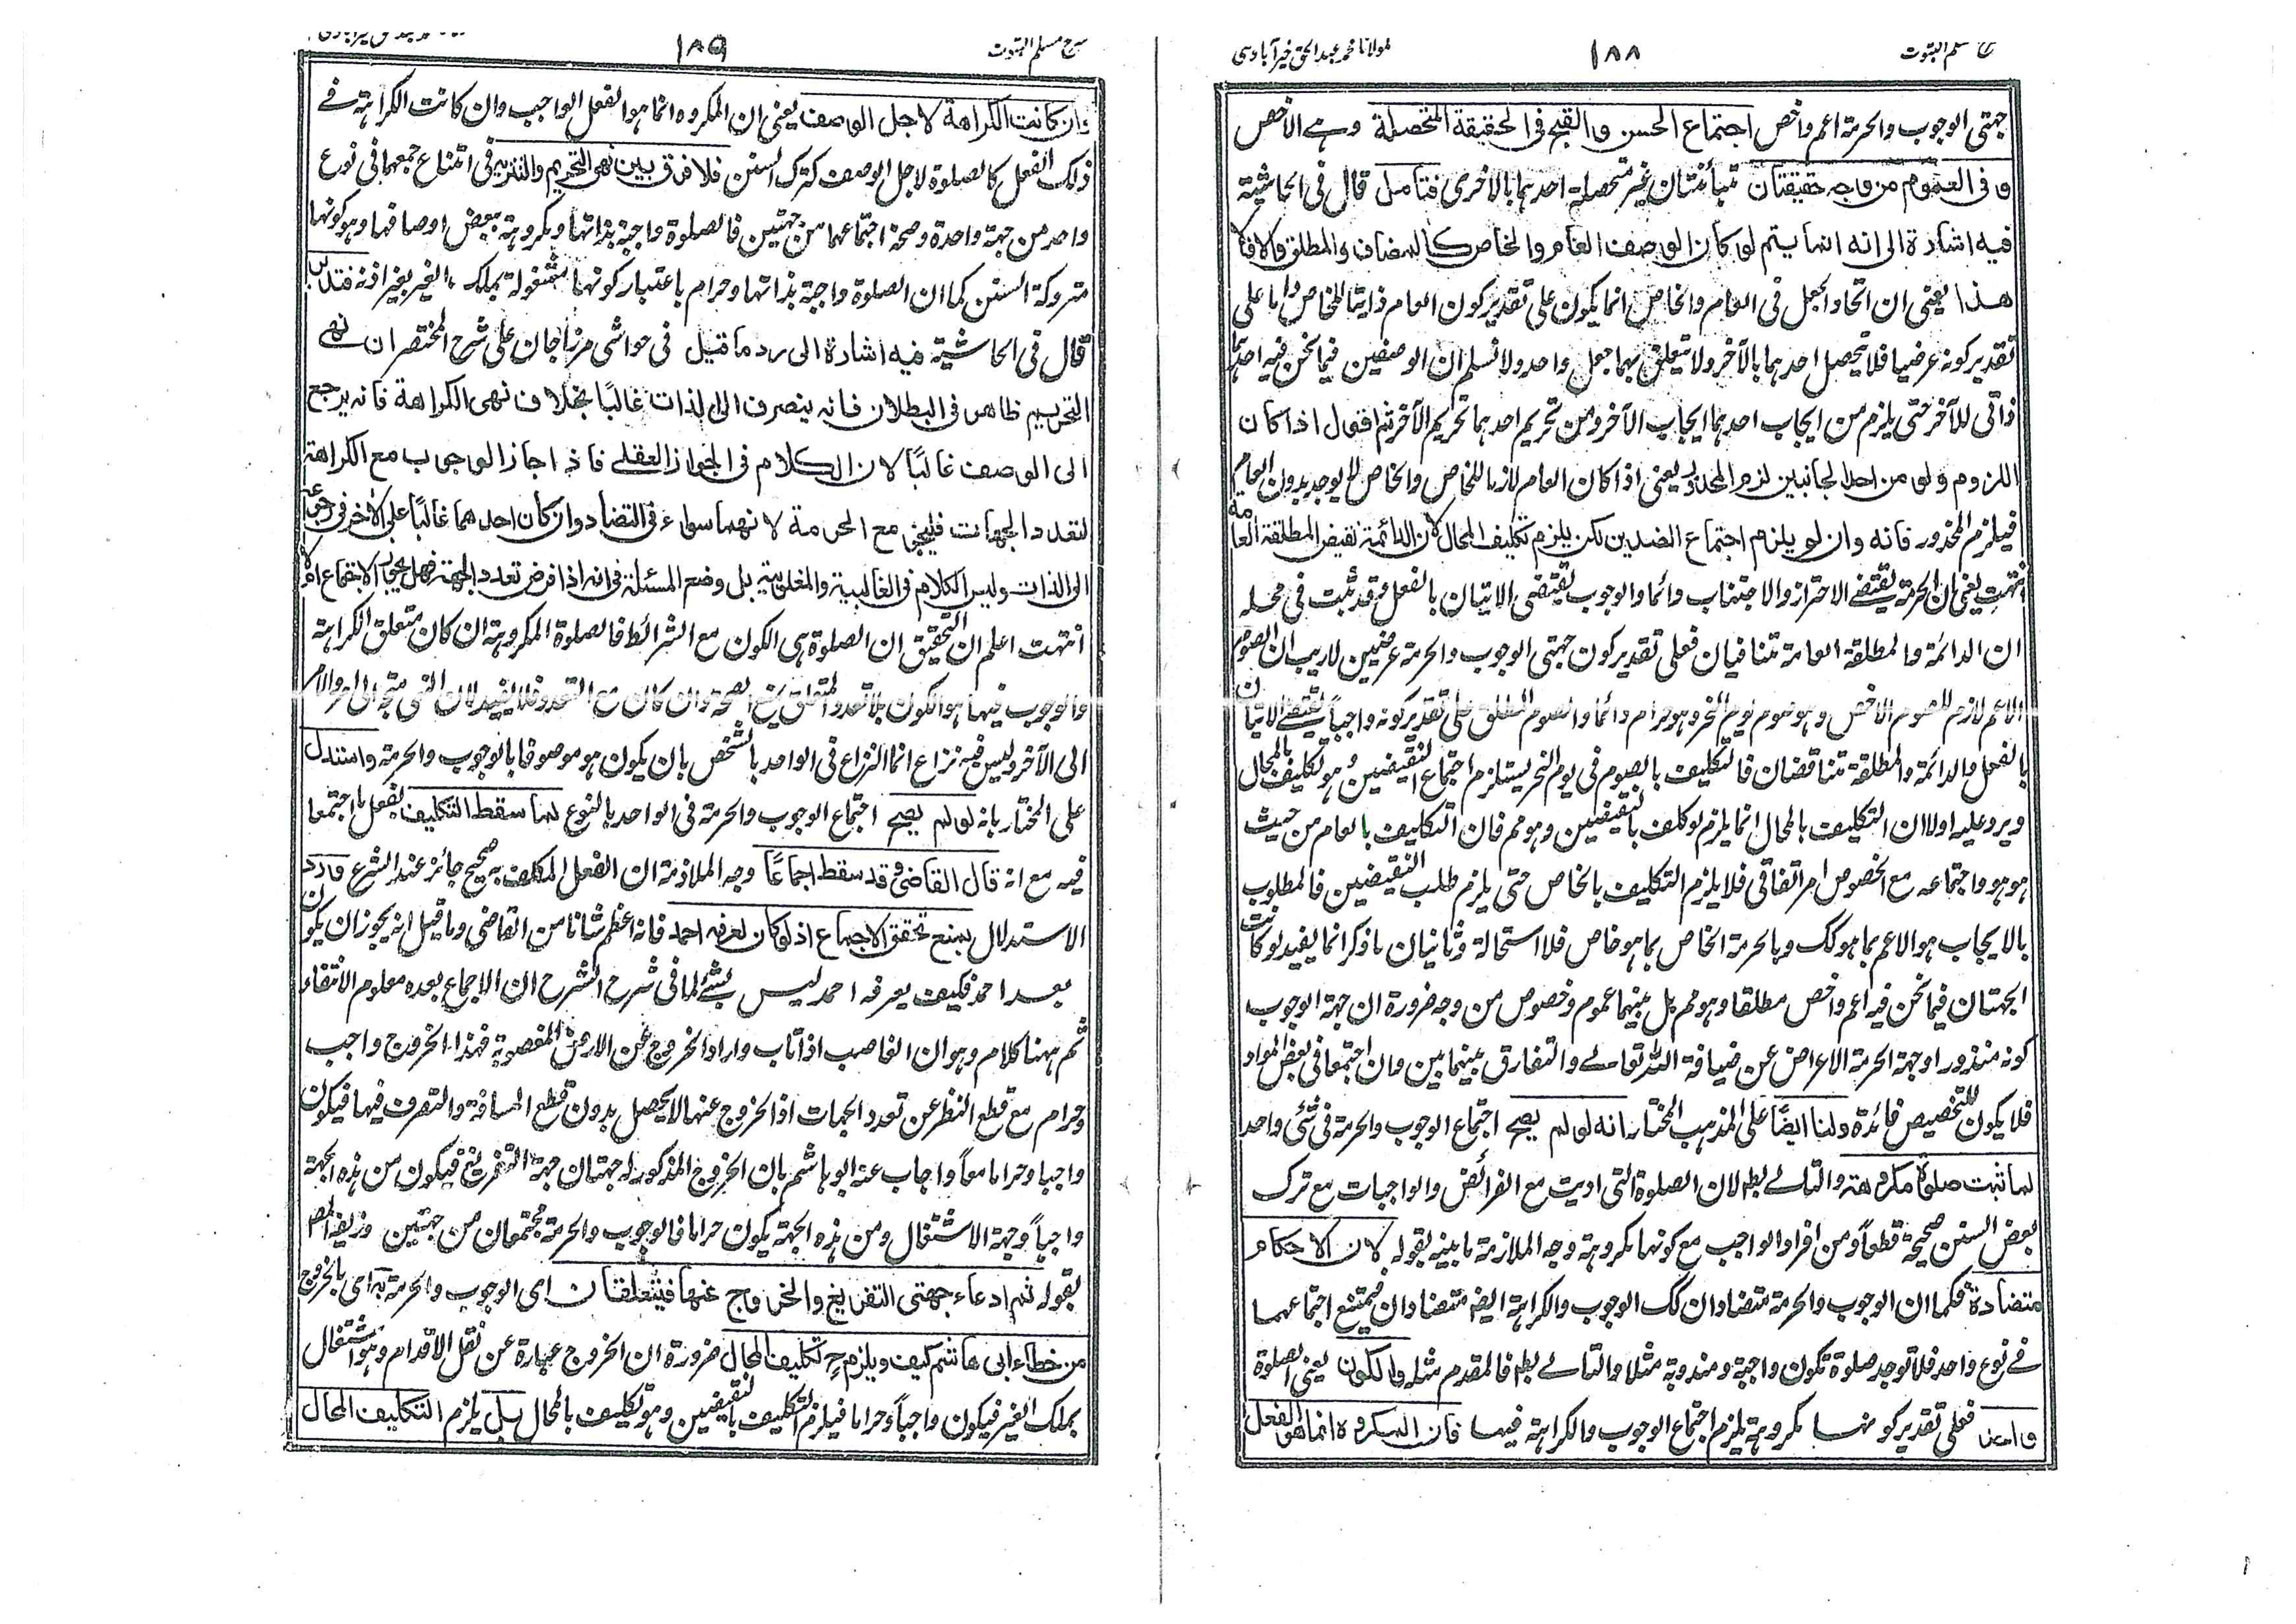 شرح مسلم الثبوت
١٨٨
مولانا محمد عبدالحق خیرآبادی
جهتی الوجوب والحرمة اعم واخص اجتماع الحسن والقبح فی الحقیقة المتحصلة وہے الاخص
وفی العموم من وجه حقیقتان متبائنتان غیر متحصلة احدهما بالاخری فتامل قال فی الحاشیة
فیه اشارة الی انه انما یتم لو کان الوصف العام والخاص کالمضاف والمطلق والا فلا
هذا یعنی ان اتحاد الجعل فی العام والخاص انما یکون علی تقدیر کون العام ذاتیا للخاص واما علی
تقدیر کونه عرضیا فلا یحصل احدهما بالآخر ولا یتعلق بهما جعل واحد ولا نسلم ان الوصفین فیما نحن فیه احدهما
ذاتی للآخر حتی یلزم من ایجاب احدهما ایجاب الآخر ومن تحریم احدهما تحریم الآخر ثم اقول اذا کان
اللزوم ولو من احد الجانبین لزم المحذور یعنی اذا کان العام لازما للخاص والخاص لا یوجد بدون العام
فیلزم المحذور فانه وان لو یلزم اجتماع الضدین لکن یلزم تکلیف المحال لان الدائمة نقیض المطلقة العامة
انتهت یعنی ان الحرمة یقتضے الاحتراز والاجتناب دائما والوجوب یقتضی الاتیان بالفعل وقد ثبت فی محله
ان الدائمة والمطلقة العامة تتنافیان فعلی تقدیر کون جهتی الوجوب والحرمة عرضیین لاریب ان الصوم
الاعم لازم للصوم الاخص وهو صوم یوم النحر وهو حرام دائما والصوم المطلق علی تقدیر کونه واجبا یقتضے الاتیان
بالفعل والدائمة والمطلقة تتناقضان فالتکلیف بالصوم فی یوم النحر یستلزم اجتماع النقیضین وهو تکلیف بالمحال
ویرد علیه اولا ان التکلیف بالمحال انما یلزم لو کلف بالنقیضین وهو مم فان التکلیف بالعام من حیث
هو هو واجتماعه مع الخصوص امر اتفاقی فلا یلزم التکلیف بالخاص حتی یلزم طلب النقیضین فالمطلوب
بالایجاب هو الاعم بما هو کک وبالحرمة الخاص بما هو خاص فلا استحالة وثانیا ان ما ذکر انما یفید لو کانت
الجهتان فیما نحن فیه اعم واخص مطلقا وهو مم بل بینهما عموم وخصوص من وجه ضرورة ان جهة الوجوب
کونه منذورا وجهة الحرمة الاعراض عن ضیافة اللّٰه تعالے والتفارق بینهما بین وان اجتمعا فی بعض المواد
فلا یکون للتخصیص فائدة ولنا ایضاً علی المذهب المختار انه لو لم یصح اجتماع الوجوب والحرمة فی شئی واحد
لما ثبت صلوٰة مکروهة والتالے بطا لان الصلوة التی ادیت مع الفرائض والواجبات مع ترک
بعض السنن صحیحة قطعاً ومن افراد الواجب مع کونها مکروهة وجه الملازمة ما بینه بقوله لان الاحکام
متضادة فکما ان الوجوب والحرمة متضادان کک الوجوب والکراهة ایضا متضادان فیمتنع اجتماعهما
فے نوع واحد فلا توجد صلوة تکون واجبة ومندوبة مثلا والتالے بط فالمقدم مثله والکون یعنی الصلوة
واحد فعلی تقدیر کونها مکروهة یلزم اجتماع الوجوب والکراهة فیها فان المکروه انما هو الفعل
شرح مسلم الثبوت
١٨٩
وان کانت الکراهة لاجل الوصف یعنی ان المکروه انما هو الفعل الواجب وان کانت الکراهة فے
ذلک الفعل کالصلوة لاجل الوصف کترک السنن فلا فرق بین نهی التحریم والتنزیه فی امتناع جمعهما فی نوع
واحد من جهة واحدة وصحة اجتماعهما من جهتین فالصلوة واجبة بذاتها ومکروهة ببعض اوصافها وهو کونها
متروکة السنن کما ان الصلوة واجبة بذاتها وحرام باعتبار کونها مشغولة بملک الغیر بغیر اذنه فتدبر
قال فی الحاشیة فیه اشارة الی رد ما قیل فی حواشی مرزاجان علی شرح المختصر ان نهے
التحریم ظاهر فی البطلان فانه ینصرف الی الذات غالبًا بخلاف نهی الکراهة فانه یرجع
الی الوصف غالبًا لان الکلام فی الجواز العقلے فاذا جاز الوجوب مع الکراهة
لتعدد الجهات فلیجز مع الحرمة لانهما سواء فی التضاد وان کان احدهما غالبًا علی الاخر فی رجوعه
الی الذات ولیس الکلام فی الغالبیة والمغلوبیة بل وضع المسئلة فی انه اذا فرض تعدد الجهة فهل یجوز الاجتماع ام لا
انتهت اعلم ان التحقیق ان الصلوة هی الکون مع الشرائط فالصلوة المکروهة ان کان متعلق الکراهة
والوجوب فیها هو الکون بلا تعدد المتعلق یمنع الصحة وان کان مع التعدد فلا یفید لان النهی متجه الی امر والامر
الی الآخر ولیس فیه نزاع انما النزاع فی الواحد بالشخص بان یکون هو موصوفا بالوجوب والحرمة واستدل
علی المختار بانه لو لم یصح اجتماع الوجوب والحرمة فی الواحد بالنوع لما سقط التکلیف بفعل ما اجتمعا
فیه مع انه قال القاضی وقد سقط اجماعًا وجه الملازمة ان الفعل المکلف به صحیح جائز عند الشرع ورد
الاستدلال بمنع تحقق الاجماع اذ لو کان لعرفه احمد فانه اعظم شانا من القاضی وما قیل انه یجوز ان یکون
بعد احمد فکیف یعرفه احمد لیس بشئے لما فی شرح الشرح ان الاجماع بعده معلوم الانتفاء
ثم ههنا کلام وهو ان الغاصب اذا تاب واراد الخروج عن الارض المغصوبة فهذا الخروج واجب
وحرام مع قطع النظر عن تعدد الجهات اذ الخروج عنها لا یحصل بدون قطع المسافة والتصرف فیها فیکون
واجبا وحراما معاً واجاب عنه ابو هاشم بان الخروج المذکور له جهتان جهة التفریغ فیکون من هذه الجهة
واجباً وجهة الاشتغال ومن هذه الجهة یکون حراما فالوجوب والحرمة مجتمعان من جهتین وزیفه المص
بقوله ثم ادعاء جهتی التفریغ والخروج عنها فیتعلقان ای الوجوب والحرمة به ای بالخروج
من خطاء ابی هاشم کیف ویلزم ح تکلیف المحال ضرورة ان الخروج عبارة عن نقل الاقدام وهو اشتغال
بملک الغیر فیکون واجباً وحراما فیلزم التکلیف بالنقیضین وهو تکلیف بالمحال بل یلزم التکلیف المحال